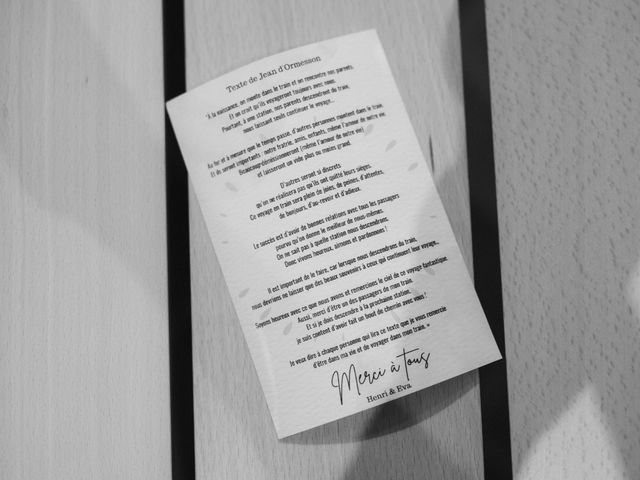 Texte de Jean d'Ormesson
"A la naissance, on monte dans le train et on rencontre nos parents.
Et on croit qu'ils voyageront toujours avec nous.
Pourtant, à une station, nos parents descendront du train,
nous laissant seuls continuer le voyage...
Au fur et à mesure que le temps passe, d'autres personnes montent dans le train.
Et ils seront importants : notre fratrie, amis, enfants, même l'amour de notre vie.
Beaucoup démissionneront (même l'amour de notre vie)
et laisseront un vide plus ou moins grand.
D'autres seront si discrets
qu'on ne réalisera pas qu'ils ont quitté leurs sièges.
Ce voyage en train sera plein de joies, de peines, d'attentes,
de bonjours, d'au-revoir et d'adieux.
Le succès est d'avoir de bonnes relations avec tous les passagers
pourvu qu'on donne le meilleur de nous-mêmes.
On ne sait pas à quelle station nous descendrons.
Donc vivons heureux, aimons et pardonnons !
Il est important de le faire, car lorsque nous descendrons du train,
nous devrions ne laisser que des beaux souvenirs à ceux qui continuent leur voyage...
Soyons heureux avec ce que nous avons et remercions le ciel de ce voyage fantastique.
Aussi, merci d'être un des passagers de mon train.
Et si je dois descendre à la prochaine station,
je suis content d'avoir fait un bout de chemin avec vous !
Je veux dire à chaque personne qui lira ce texte que je vous remercie
d'être dans ma vie et de voyager dans mon train. »
Merci à tous
Henri & Eva